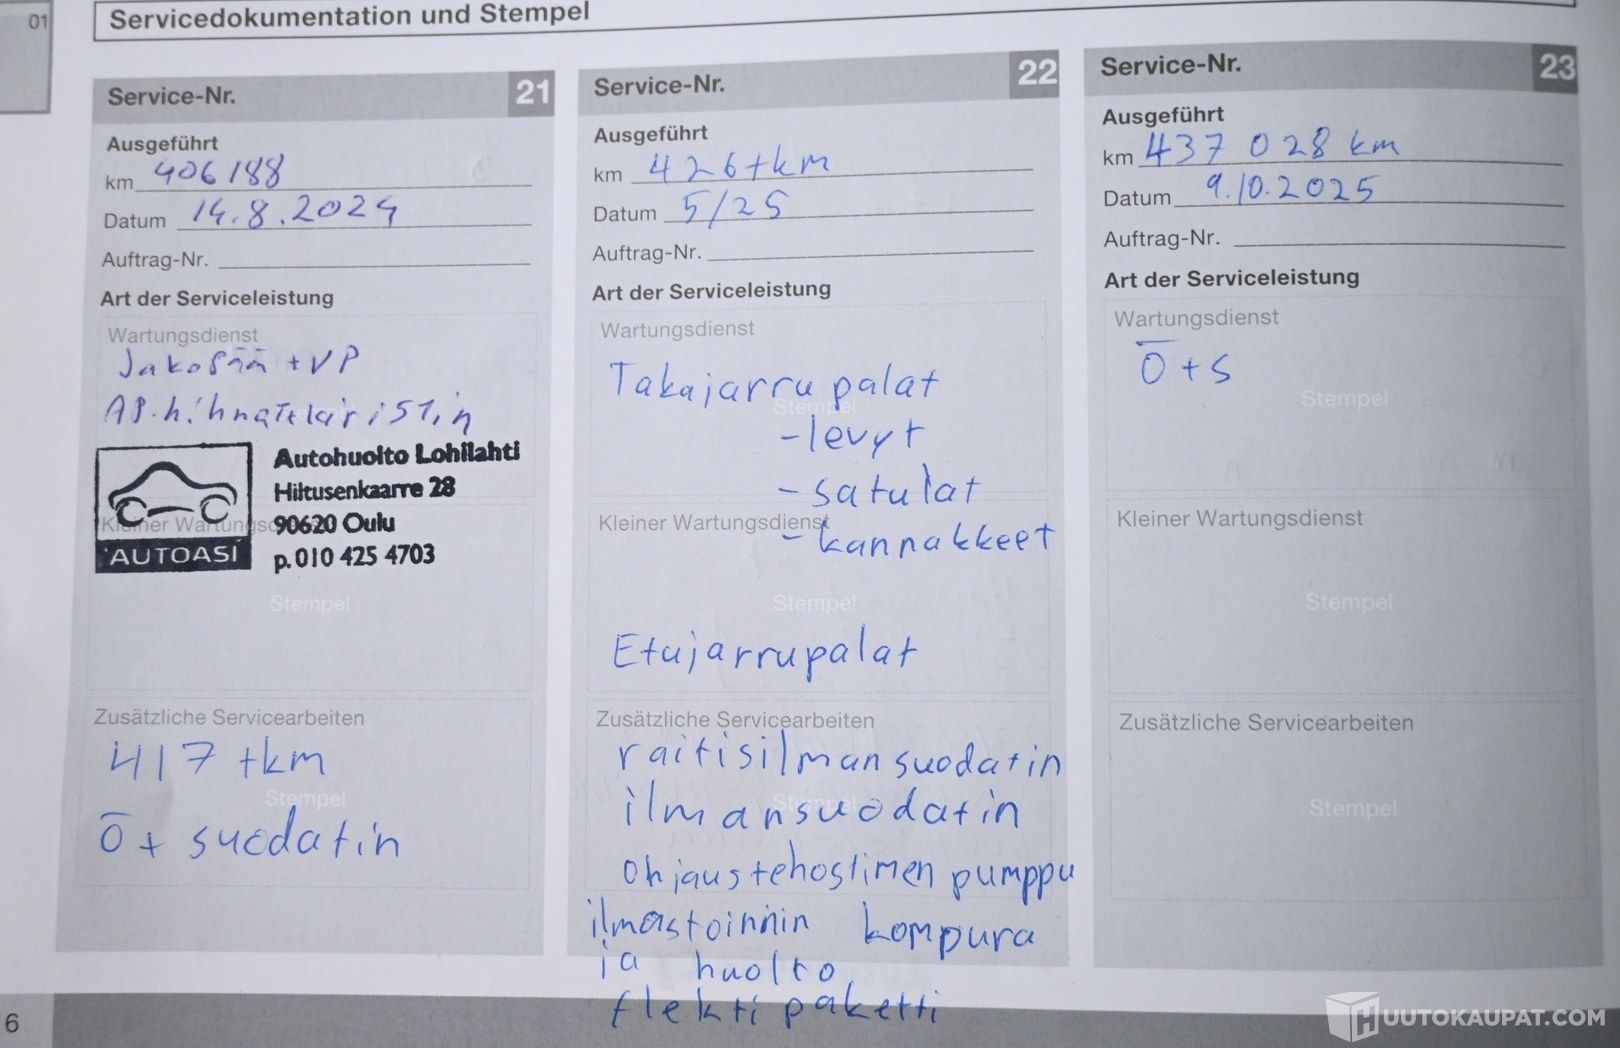 01
Servicedokumentation und Stempel
Service-Nr. 21
Ausgeführt
km 406188
Datum 14.8.2024
Auftrag-Nr.
Art der Serviceleistung
Wartungsdienst
Jakopää + VP
AP.hihnatekiristin
Autohuolto Lohilahti
Hiltusenkaarre 28
Kleiner Wartungsd
90620 Oulu
AUTOASI
p.010 425 4703
Stempel
Zusätzliche Servicearbeiten
417 tkm
Stempel
ō + suodatin
Service-Nr. 22
Ausgeführt
km 426 tkm
Datum 5/25
Auftrag-Nr.
Art der Serviceleistung
Wartungsdienst
Takajarrupalat
Stempel
-levyt
-satulat
Kleiner Wartungsdienst
-kannakkeet
Stempel
Etujarrupalat
Zusätzliche Servicearbeiten
raitisilmansuodatin
Stempel
ilmansuodatin
ohjaustehostimen pumppu
ilmastoinnin kompura
ja huolto
flekti paketti
Service-Nr. 23
Ausgeführt
km 437 028 km
Datum 9.10.2025
Auftrag-Nr.
Art der Serviceleistung
Wartungsdienst
ō + s
Stempel
Kleiner Wartungsdienst
Stempel
Zusätzliche Servicearbeiten
Stempel
6
HUUTOKAUPAT.COM